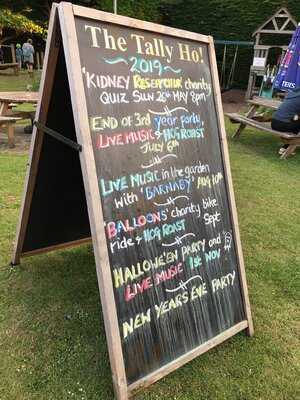 The Tally Ho!
2019
'KIDNEY RESEARCH UK' charity
QUIZ SUN 26th MAY 8pm
END OF 3rd year party
LIVE MUSIC & HOG ROAST
JULY 6th
LIVE MUSIC in the garden
with 'BARNABY' AUG 10th
'BALLOONS' charity bike
ride & HOG ROAST Sept
HALLOWE'EN PARTY and
LIVE MUSIC 1st Nov
NEW YEARS EVE PARTY